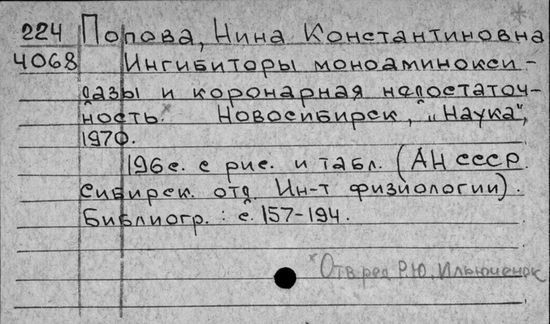 *
224 Попова, Нина Константиновна
4068 Ингибиторы моноаминокси-
дазы и коронарная недостаточ-
ность.* Новосибирск, „Наука",
1970.
196с. с рис. и табл. (АН СССР
Сибирск. отд Ин-т физиологии).
Библиогр.: с. 157-194.
*Отв ред Р.Ю. Ильюченок